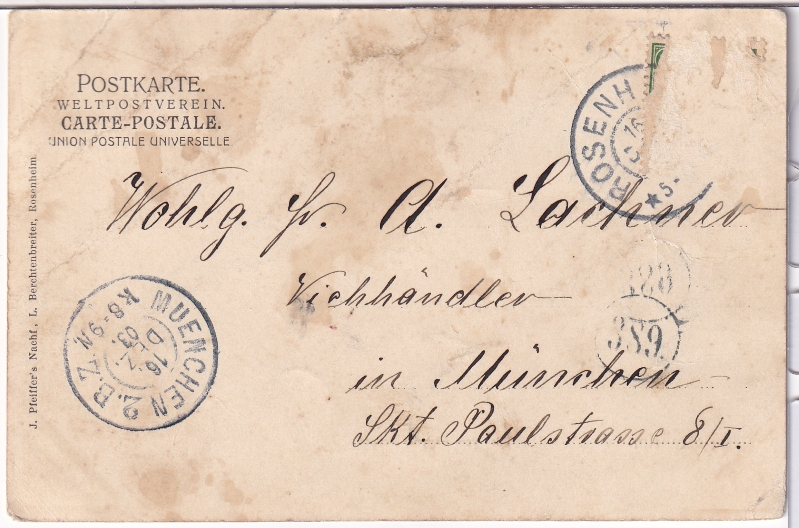 POSTKARTE.
WELTPOSTVEREIN.
CARTE-POSTALE.
UNION POSTALE UNIVERSELLE
ROSENH
16
5-
Wohlg. Hr. A. Lachner
Viehhändler
in München
Skt. Paulstrasse 8/I.
MUENCHEN 2.B.Z.
K8-9N
16
DEZ.
03
389.
J. Pfeiffer's Nachf, L. Berchtenbreiter, Rosenheim.